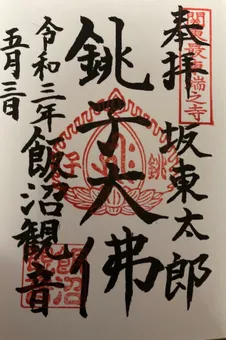 関東最東端之寺
奉拝 坂東太郎
銚子大佛
飯沼観音
令和三年
五月三日